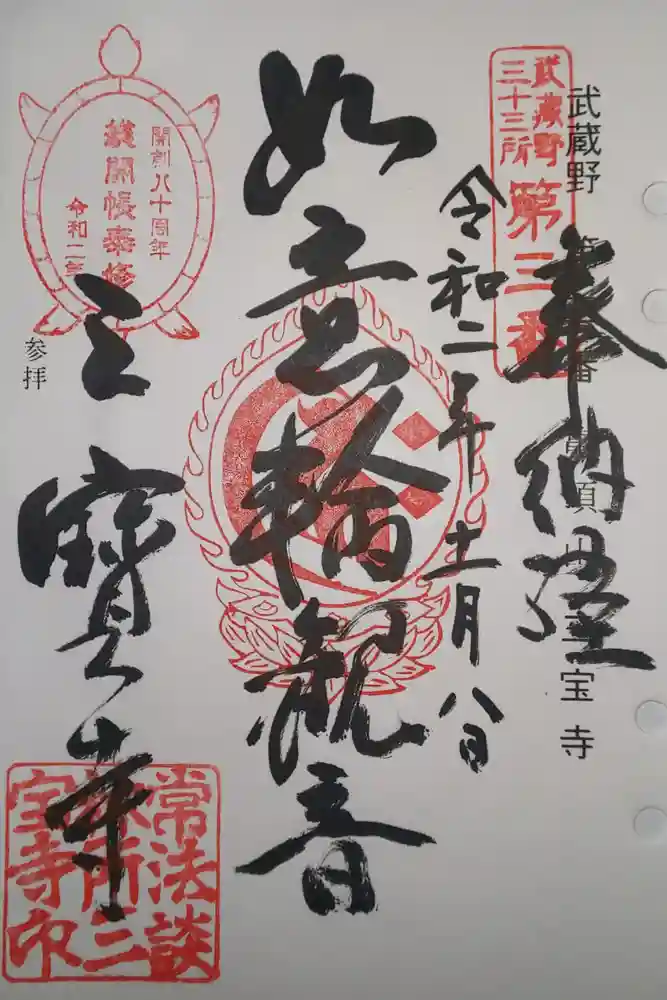 武蔵野
三十三所
第三番
武蔵野 第三番 亀頂山 三宝寺
奉納経
令和二年十一月八日
如意輪観音
開創八十周年
御開帳奉修
令和二年
参拝
三寳寺
常法談
林所三
宝寺印